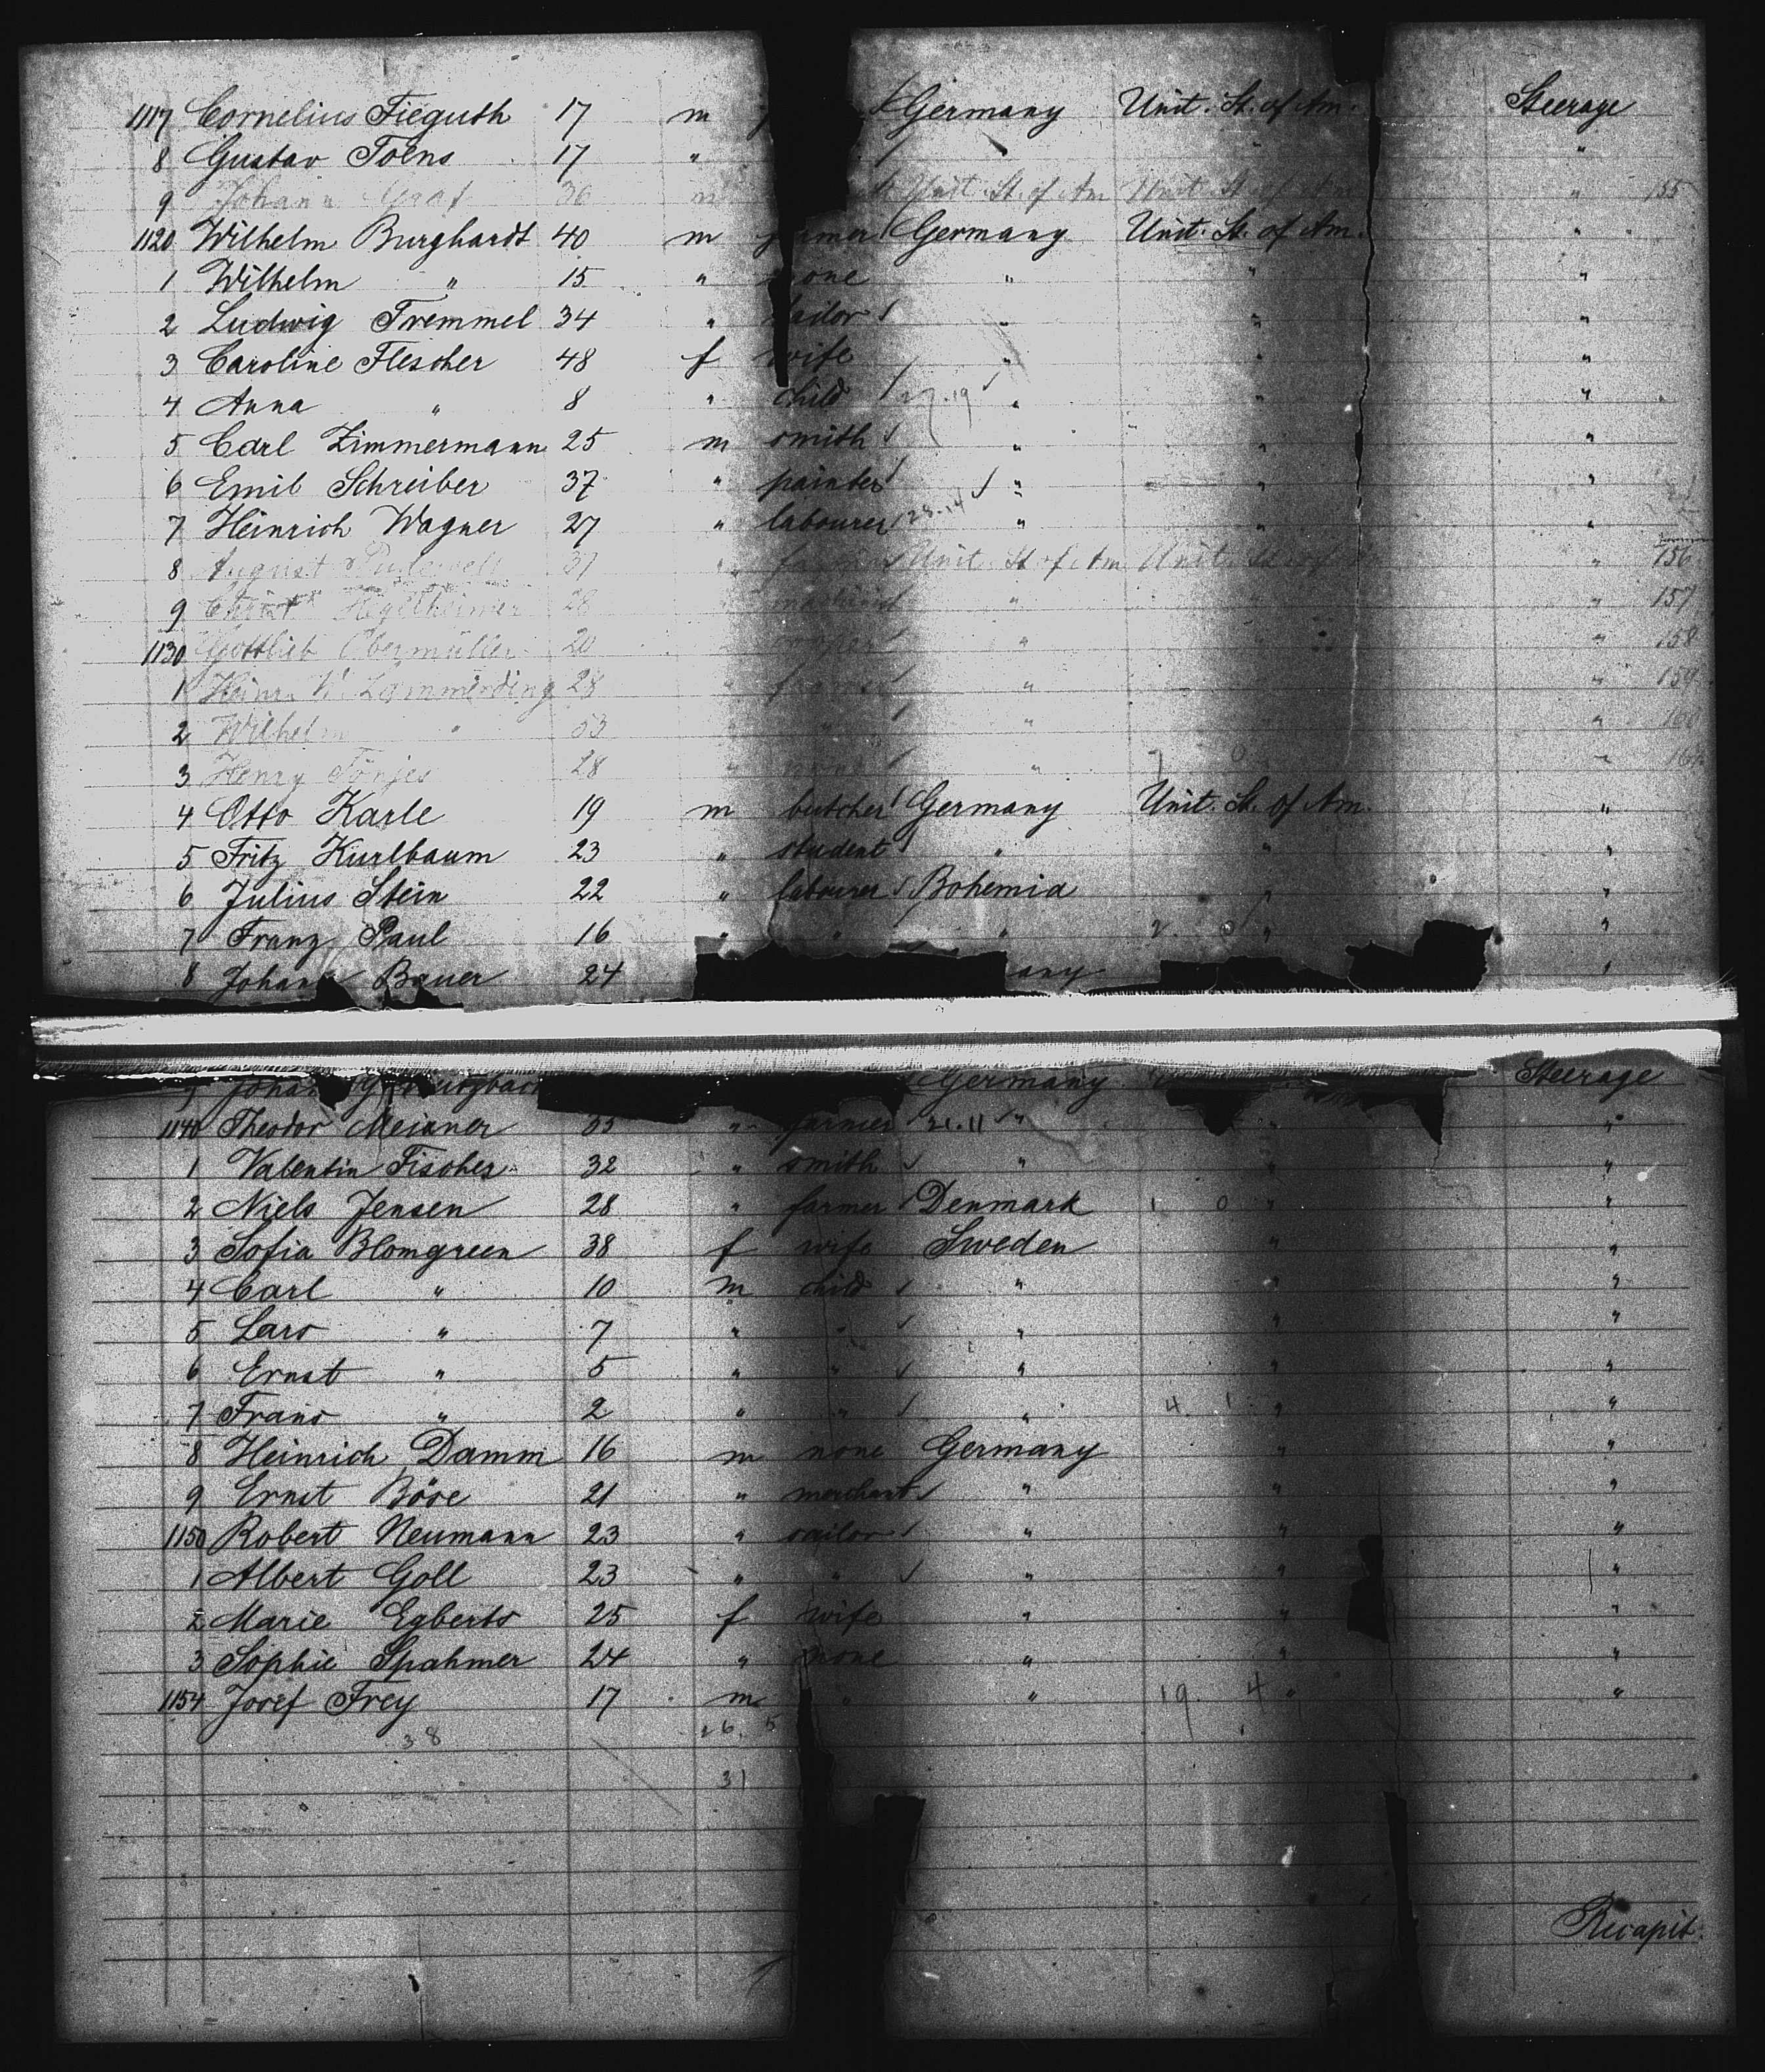 1117 Cornelius Fieguth 17 m Germany Unit. St. of Am. Steerage
8 Gustav Toens 17 " " "
9 Johann Graf 36 m Unit. St. of Am Unit. St. of Am " 155
1120 Wilhelm Burghardt 40 m farmer Germany Unit. St. of Am. "
1 Wilhelm " 15 " none " " "
2 Ludwig Tremmel 34 " " " "
3 Caroline Flescher 48 f wife " " "
4 Anna " 8 " child 27.19 " " "
5 Carl Zimmermann 25 m smith " " "
6 Emil Schreiber 37 " painter " " "
7 Heinrich Wagner 27 " labourer 28.14 " " "
8 August 37 " farmer Unit. St. of Am Unit. St. of Am " 156
9 28 " " " " 157
1130 Gottlieb Obermüller 20 " " " " 158
1 Lammerding 28 " farmer " " " 159
2 Wilhelm " 53 " " " " " 160
3 Henry Tönjes 28 " none " "
4 Otto Karle 19 m butcher Germany Unit. St. of Am. "
5 Fritz Kurlbaum 23 " student " " "
6 Julius Stein 22 " labourer Bohemia " "
7 Franz Paul 16 " " " 2. 0 " "
8 Johann Bauer 24 any "
9 Johann Germany Steerage
1140 Theodor Meixner 35 " farmer 21.11 " " "
1 Valentin Fischer 32 " smith " " "
2 Niels Jensen 28 " farmer Denmark 1 0 " "
3 Sofia Blomgreen 38 f wife Sweden " "
4 Carl " 10 m child " " "
5 Lars " 7 " " " " "
6 Ernst " 5 " " " " "
7 Frans " 2 " " " 4. 1 " "
8 Heinrich Damm 16 m none Germany " "
9 Ernst Böse 21 " merchant " " "
1150 Robert Neumann 23 " sailor " " "
1 Albert Goll 23 " " " " "
2 Marie Egberts 25 f wife " " "
3 Sophie Spahmer 24 " none " " "
1154 Josef Frey 17 m " " 19. 4 " "
38 26. 5
31
Recapit.